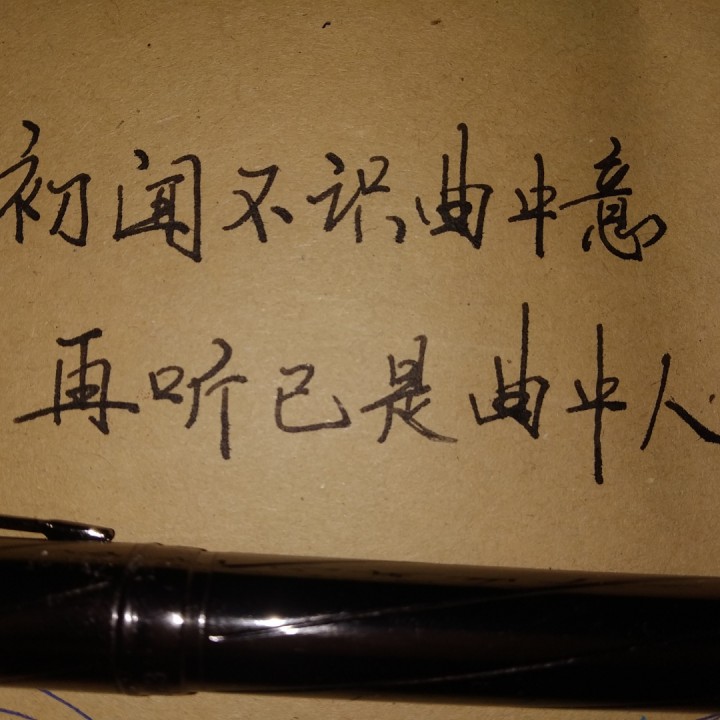 初闻不识曲中意
再听已是曲中人